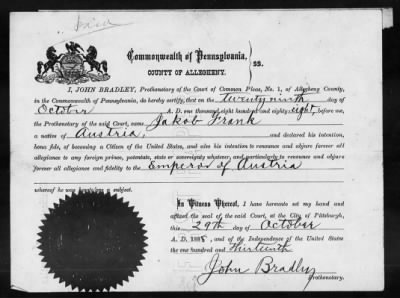 Paid
Commonwealth of Pennsylvania,
COUNTY OF ALLEGHENY. } SS.
I, JOHN BRADLEY, Prothonotary of the Court of Common Pleas, No. 1, of Allegheny County,
in the Commonwealth of Pennsylvania, do hereby certify, that on the twenty ninth day of
October A. D. one thousand eight hundred and eighty eight, before me,
the Prothonotary of the said Court, came Jakob Frank
a native of Austria, and declared his intention,
bona fide, of becoming a Citizen of the United States, and also his intention to renounce and abjure forever all
allegiance to any foreign prince, potentate, state or sovereignty whatever, and particularly to renounce and abjure
forever all allegiance and fidelity to the Emperor of Austria
whereof he was heretofore a subject.
In Witness Whereof, I have hereunto set my hand and
affixed the seal of the said Court, at the City of Pittsburgh,
this 29th day of October
A. D. 1888, and of the Independence of the United States
the one hundred and thirteenth
John Bradley
Prothonotary.